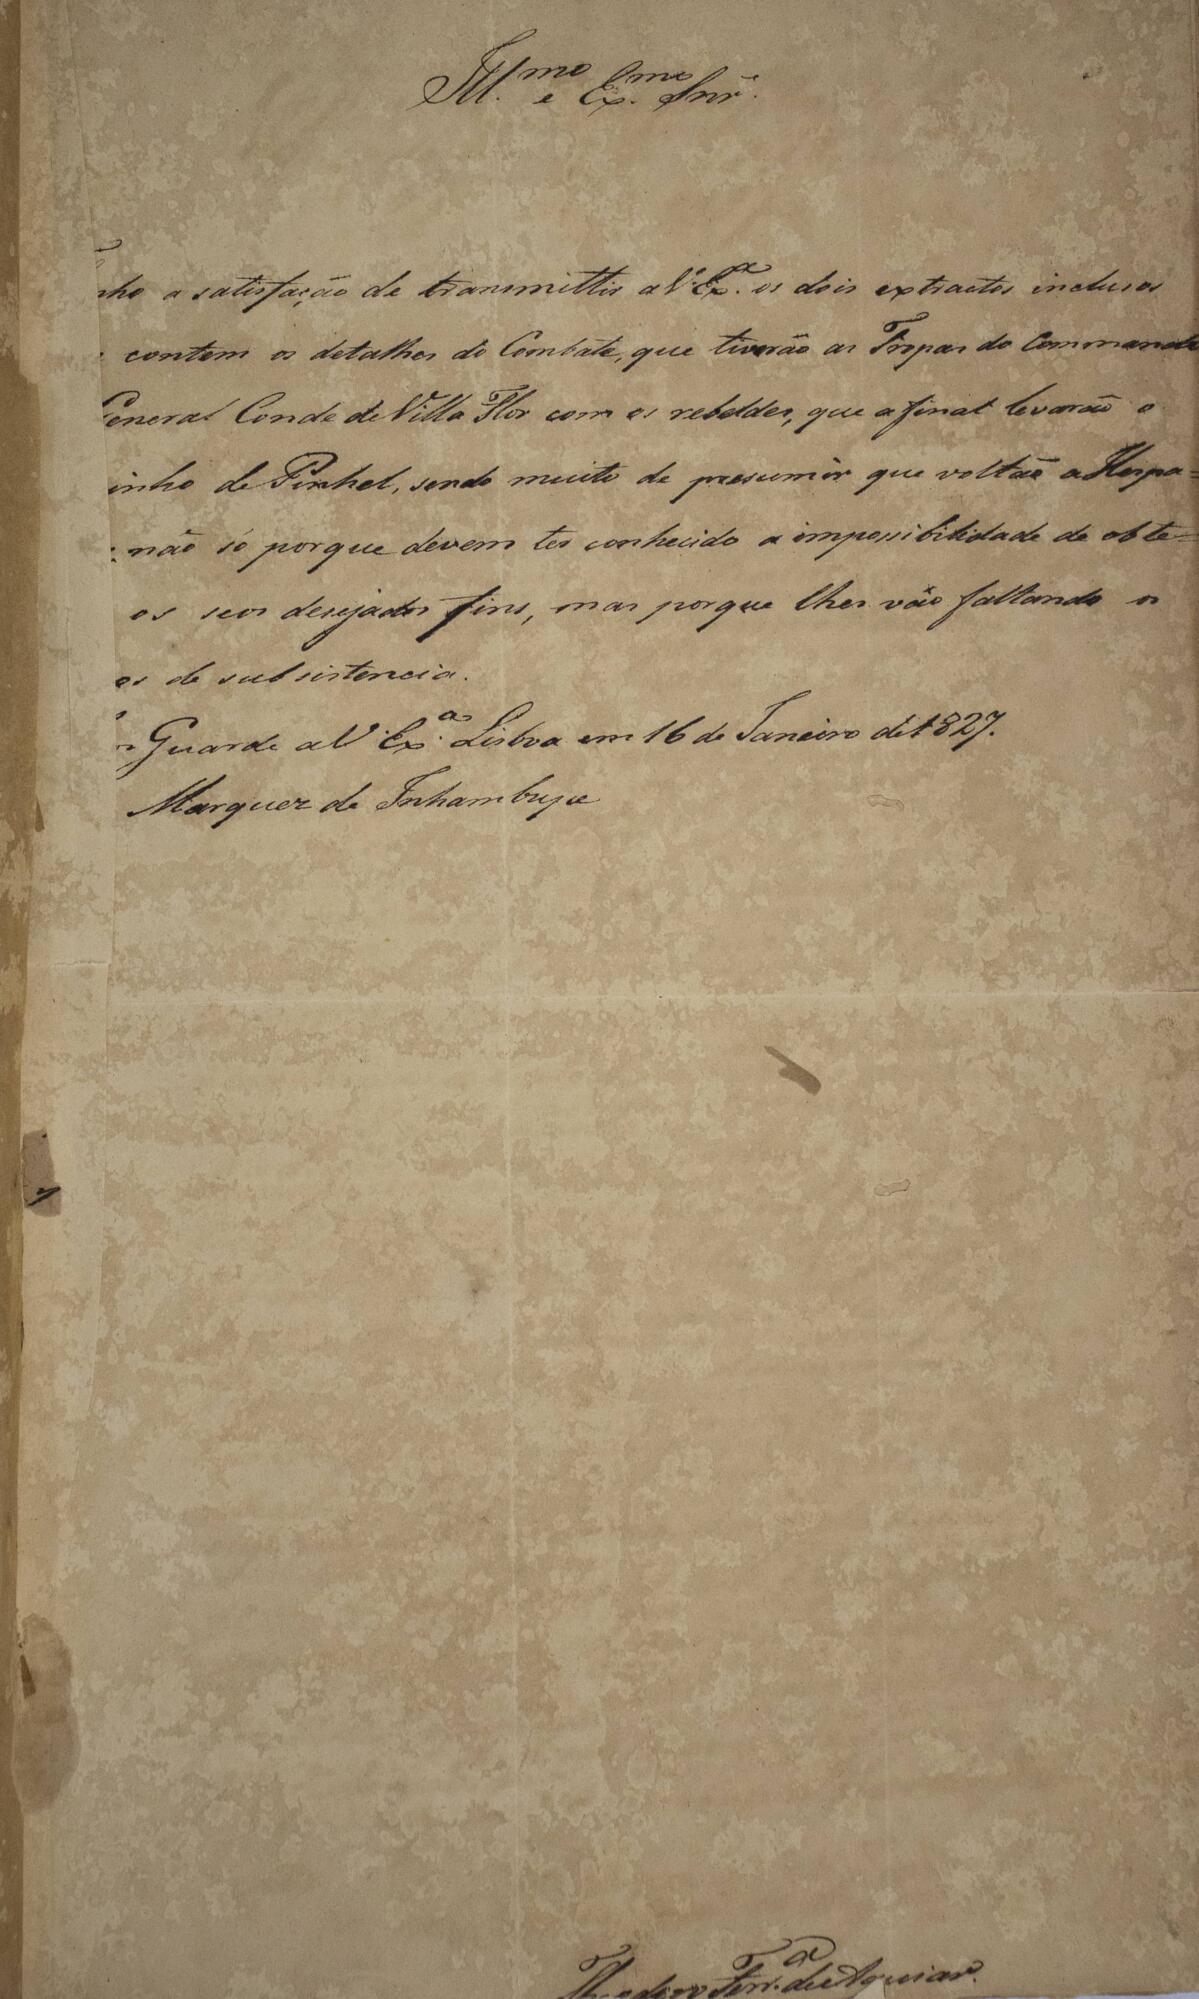 Ill.mo e Ex.mo Snr.
nho a satisfação de transmittir a V. Ex.a os dois extractos inclusos
contem os detalhes do Combate, que tiverão as Tropas do Commando
General Conde de Villa Flor com os rebeldes, que a final levarão o
inho de Pinhel, sendo muito de presumir que voltão a Hespa=
não só porque devem ter conhecido a impossibilidade de obte=
os seos desejados fins, mas porque lhes vão faltando os
os de subsistencia.
Guarde a V. Ex.a Lisboa em 16 de Janeiro de 1827.
Marquez de Inhambupe
Theodoro Ferr.a de Aguiar.